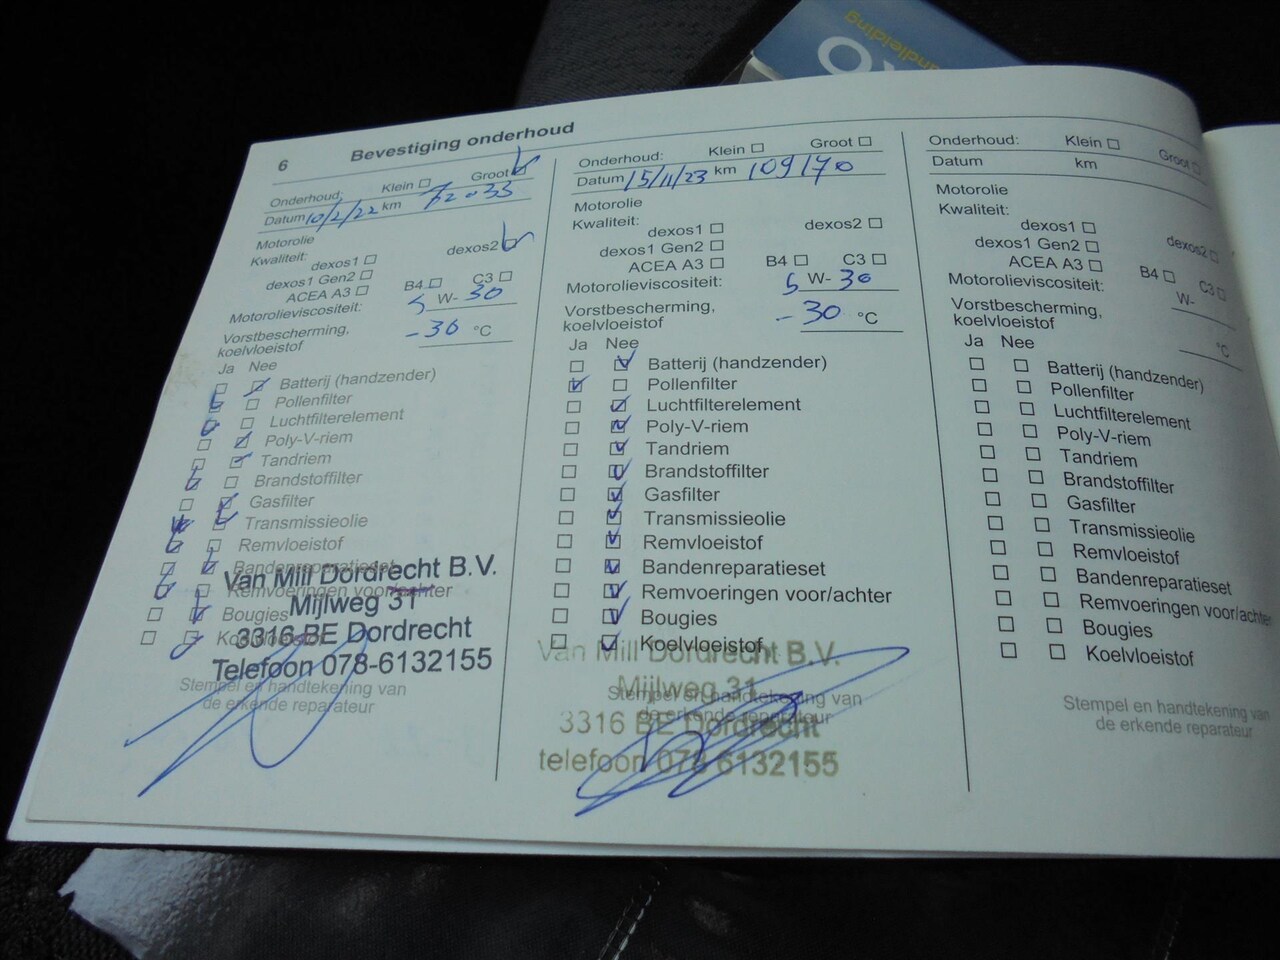 andleiding
6
Bevestiging onderhoud
Onderhoud: Klein Groot
Datum 10/2/22 km 72033
Motorolie
Kwaliteit: dexos1 dexos2
dexos1 Gen2
ACEA A3 B4 C3
Motorolieviscositeit: 5 W- 30
Vorstbescherming,
koelvloeistof -36 °C
Ja Nee
Batterij (handzender)
Pollenfilter
Luchtfilterelement
Poly-V-riem
Tandriem
Brandstoffilter
Gasfilter
Transmissieolie
Remvloeistof
Bandenreparatieset
Remvoeringen voor/achter
Bougies
Koelvloeistof
Van Mill Dordrecht B.V.
Mijlweg 31
3316 BE Dordrecht
Telefoon 078-6132155
Stempel en handtekening van
de erkende reparateur
Onderhoud: Klein Groot
Datum 15/11/23 km 109170
Motorolie
Kwaliteit:
dexos1 dexos2
dexos1 Gen2
ACEA A3 B4 C3
Motorolieviscositeit: 5 W- 30
Vorstbescherming,
koelvloeistof -30 °C
Ja Nee
Batterij (handzender)
Pollenfilter
Luchtfilterelement
Poly-V-riem
Tandriem
Brandstoffilter
Gasfilter
Transmissieolie
Remvloeistof
Bandenreparatieset
Remvoeringen voor/achter
Bougies
Koelvloeistof
Van Mill Dordrecht B.V.
Mijlweg 31
Stempel en handtekening van
de erkende reparateur
3316 BE Dordrecht
telefoon 078 6132155
Onderhoud: Klein Groot
Datum km
Motorolie
Kwaliteit:
dexos1 dexos2
dexos1 Gen2
ACEA A3 B4 C3
Motorolieviscositeit: W-
Vorstbescherming,
koelvloeistof °C
Ja Nee
Batterij (handzender)
Pollenfilter
Luchtfilterelement
Poly-V-riem
Tandriem
Brandstoffilter
Gasfilter
Transmissieolie
Remvloeistof
Bandenreparatieset
Remvoeringen voor/achter
Bougies
Koelvloeistof
Stempel en handtekening van
de erkende reparateur